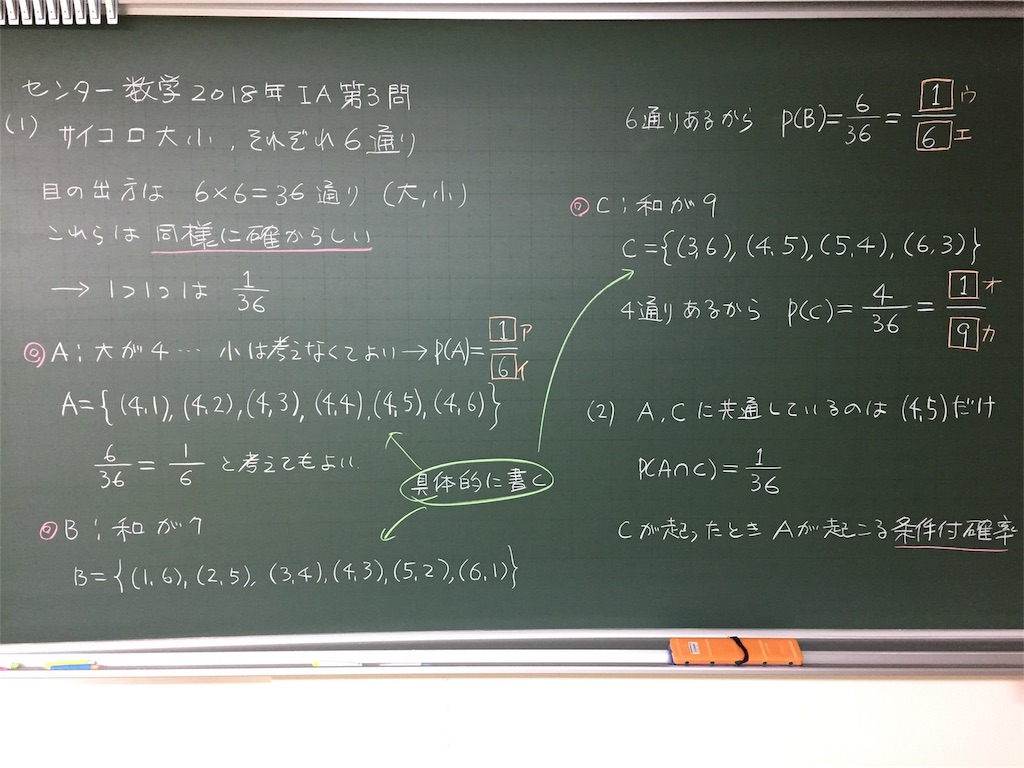 センター数学2018年IA第3問
(1) サイコロ大小,それぞれ6通り
目の出方は 6×6=36通り (大,小)
これらは 同様に確からしい
→ 1つ1つは 1/36
◎A:大が4… 小は考えなくてよい→P(A)=1/6 ア イ
A={(4,1),(4,2),(4,3),(4,4),(4,5),(4,6)}
6/36=1/6 と考えてもよい
具体的に書く
◎B:和が7
B={(1,6),(2,5),(3,4),(4,3),(5,2),(6,1)}
6通りあるから P(B)=6/36=1/6 ウ エ
◎C:和が9
C={(3,6),(4,5),(5,4),(6,3)}
4通りあるから P(C)=4/36=1/9 オ カ
(2) A,Cに共通しているのは(4,5)だけ
P(A∩C)=1/36
Cが起こったときAが起こる条件付確率